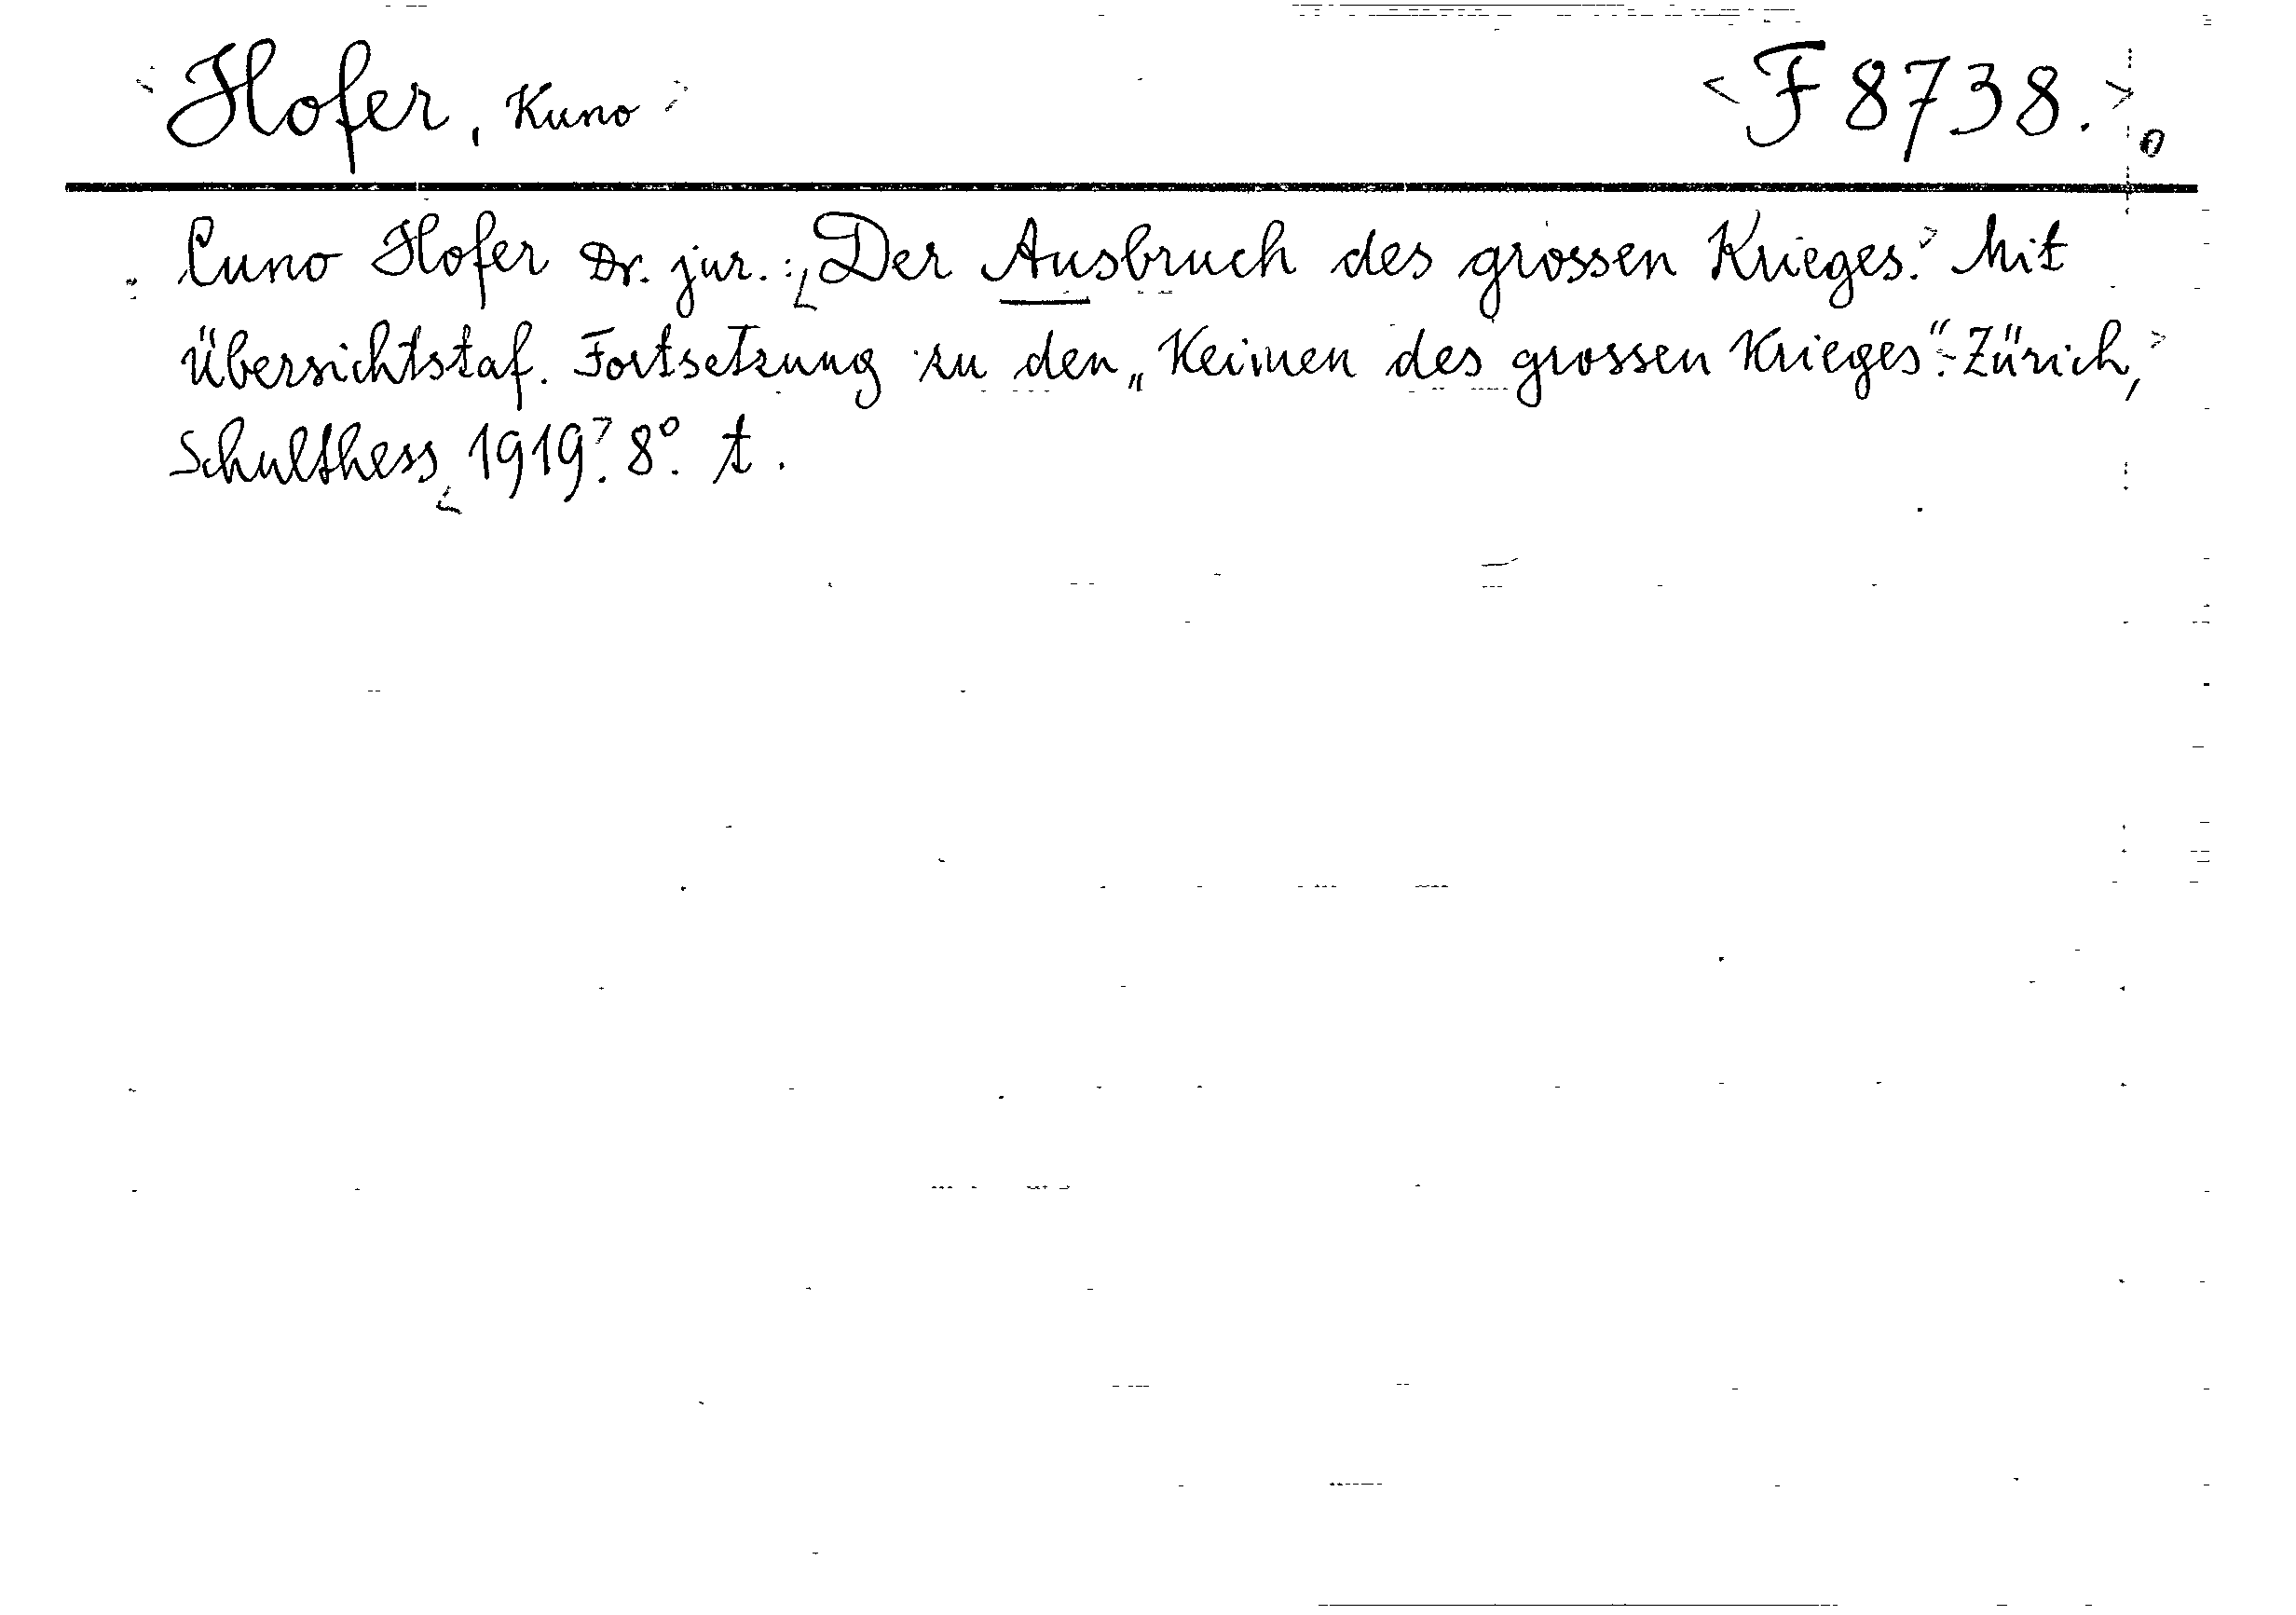 <Hofer, Kuno> <F 8738.>
Cuno Hofer Dr. jur.: <Der Ausbruch des grossen Krieges.> Mit
Übersichtstaf. Fortsetzung zu den „Keimen des grossen Krieges“.- Zürich,>
Schulthess <1919>. 8°. t.